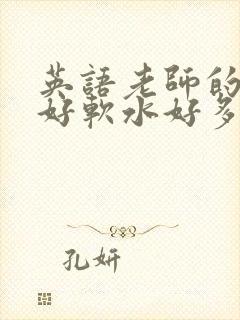 英語老師的
好軟水好多
孔妍